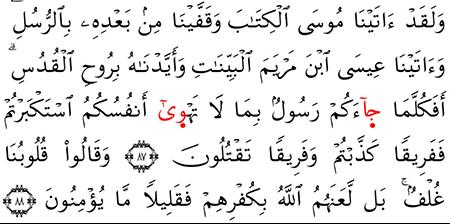 وَلَقَدْ ءَاتَيْنَا مُوسَى ٱلْكِتَابَ وَقَفَّيْنَا مِنۢ بَعْدِهِۦ بِٱلرُّسُلِ ۖ
وَءَاتَيْنَا عِيسَى ٱبْنَ مَرْيَمَ ٱلْبَيِّنَاتِ وَأَيَّدْنَاهُ بِرُوحِ ٱلْقُدُسِ ۗ
أَفَكُلَّمَا جَآءَكُمْ رَسُولٌۢ بِمَا لَا تَهْوَىٰٓ أَنفُسُكُمُ ٱسْتَكْبَرْتُمْ
فَفَرِيقًا كَذَّبْتُمْ وَفَرِيقًا تَقْتُلُونَ ٨٧ وَقَالُوا۟ قُلُوبُنَا
غُلْفٌۢ ۚ بَل لَّعَنَهُمُ ٱللَّهُ بِكُفْرِهِمْ فَقَلِيلًا مَّا يُؤْمِنُونَ ٨٨